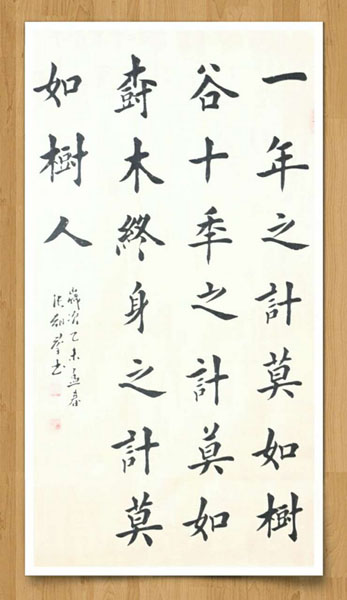 一年之計莫如樹
谷十秊之計莫如
樹木終身之計莫
如樹人
歲次乙未孟春
書